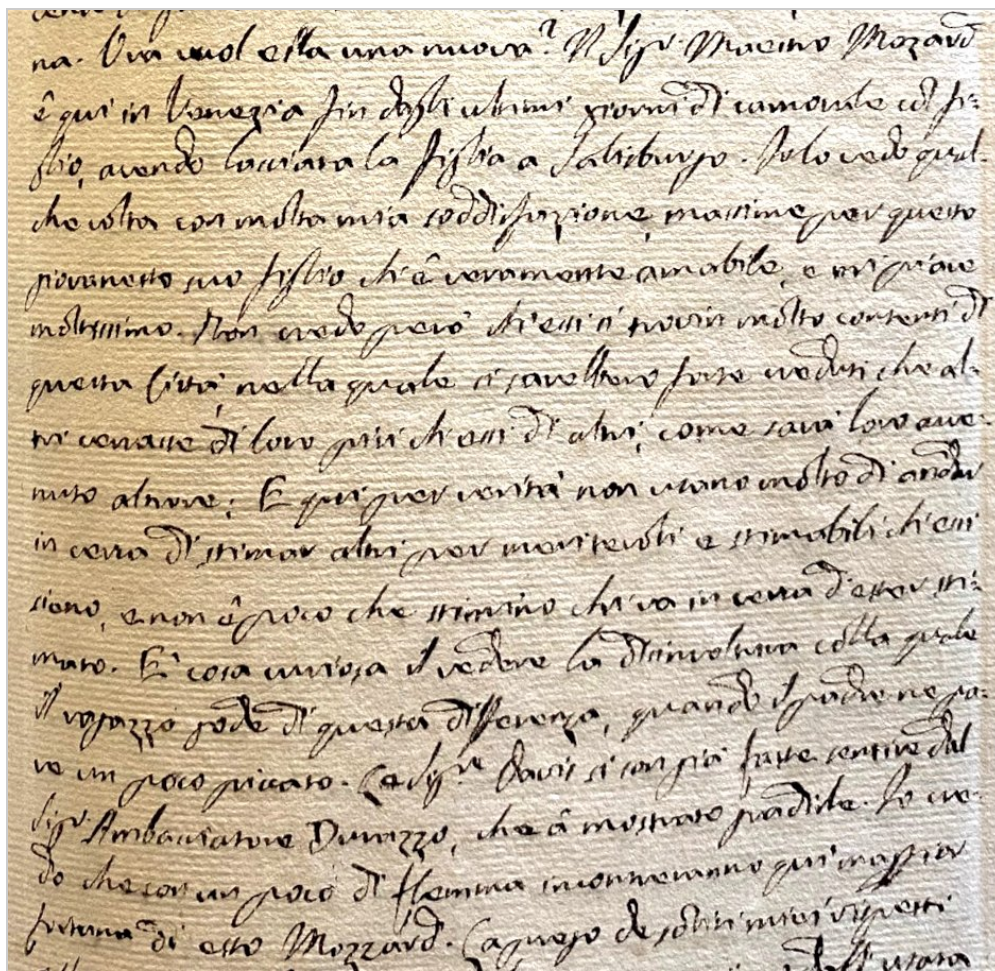 na. Ora vuol ella una nuova? Il Sigr Maestro Mozard
è qui in Venezia fin dagli ultimi giorni di carnovale col fi-
glio, avendo lasciata la figlia a Salisburgo. Io lo vedo qual-
che volta con molta mia soddisfazione, massime per questo
giovanetto suo figlio ch'è veramente amabile, e mi piace
moltissimo. Non credo però ch'essi si trovin molto contenti di
questa Città, nella quale si sarebbero forse creduti che al-
tri cercasse di loro più ch'essi di altri, come sarà loro avve-
nuto altrove; E qui per verità non usano molto di andar
in cerca di stimar altri per meritevoli e stimabili ch'essi
sieno, e non è poco che stimino chi va in cerca d'esser sti-
mato. E' cosa curiosa il vedere la disinvoltura colla quale
il ragazzo gode di questa differenza, quando il padre ne pa-
re un poco piccato. Le Sigre Davis si son già fatte sentire dal
Sigr Ambasciatore Durazzo, che à mostrato gradirle. Io cre-
do che con un poco di flemma incontreranno qui maggior
fortuna di esso Mozzard. Ca miei rispetti